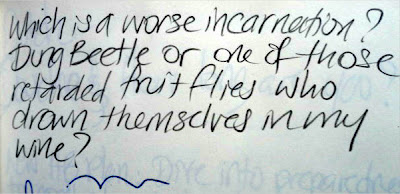 Which is a worse incarnation?
Dung Beetle or one of those
retarded fruit flies who
drown themselves in my
wine?